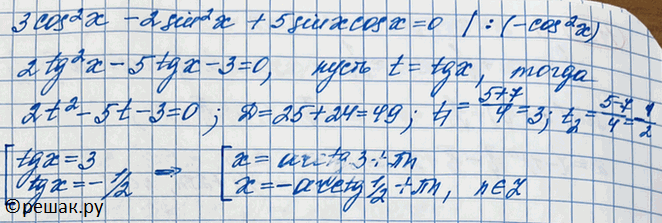 3cos²x - 2sin²x + 5sinxcosx = 0 | : (-cos²x)
2tg²x - 5tgx - 3 = 0, пусть t = tgx, тогда
2t² - 5t - 3 = 0; D = 25 + 24 = 49; t₁ = (5+7)/4 = 3; t₂ = (5-7)/4 = -1/2
[tgx = 3 => [x = arctg 3 + πn
tgx = -1/2 x = -arctg 1/2 + πn, n∈Z
©решак.ру